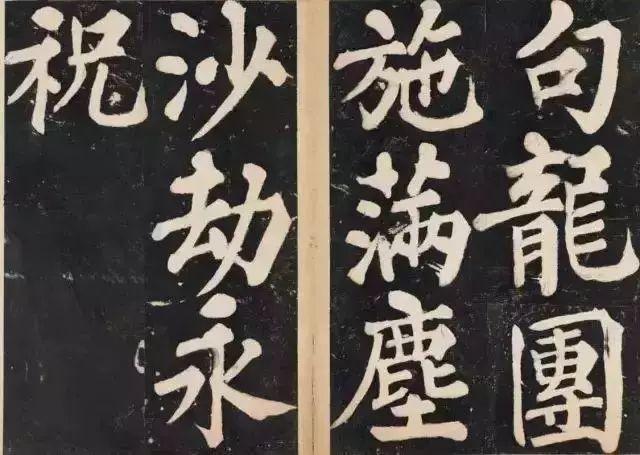 句龍團
施滿塵
沙劫永
祝